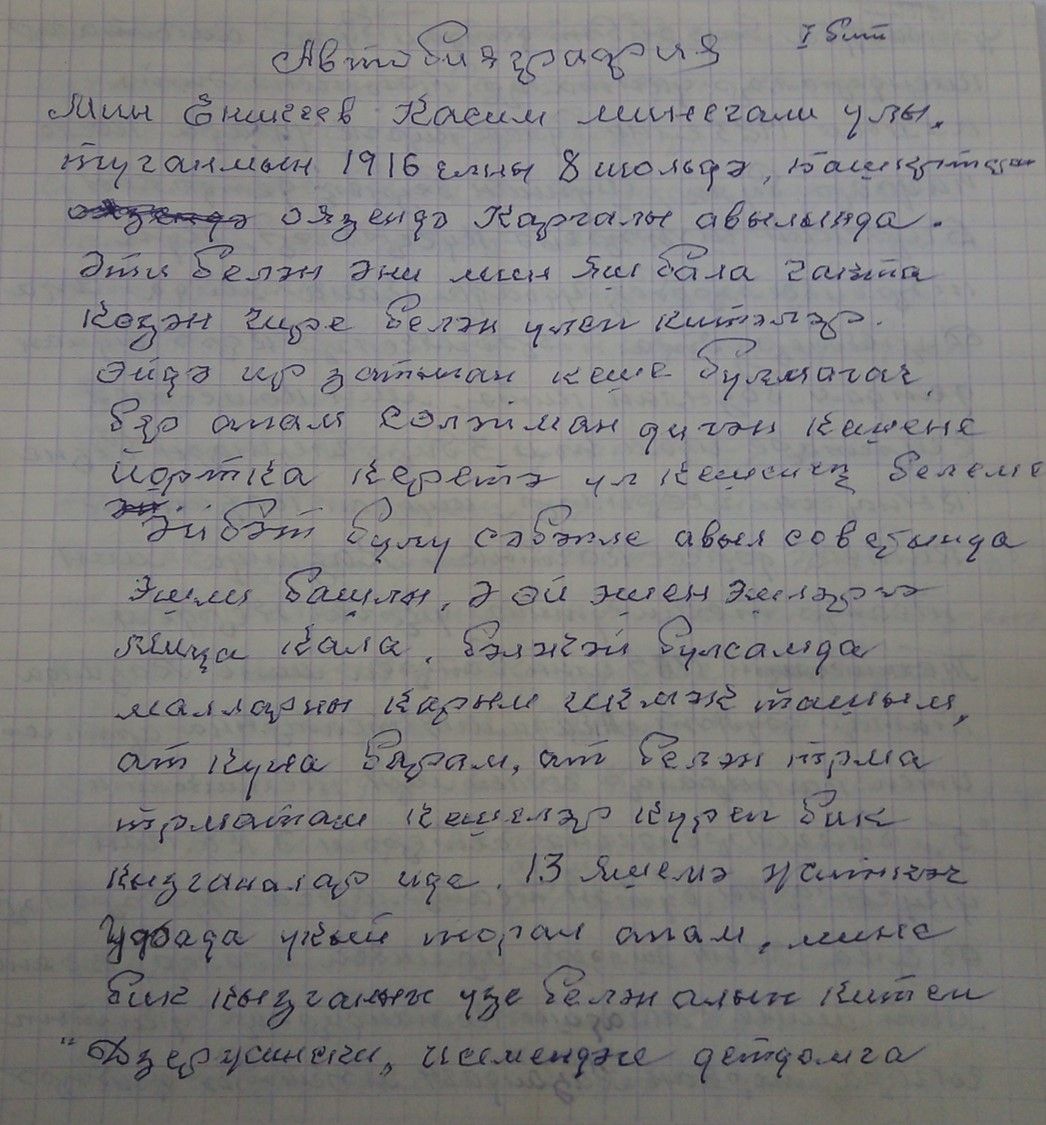 I бит
Автобияграфия
Мин Еникеев Касим минегали улы,
туганмын 1916 елны 8 июльдә, Башкортстан
оязендә Каргалы авылында.
Әти белән әни мин яш бала чакта
көзән чире белән үлеп китәләр.
Өйдә ир затыннан кеше булмагач,
бер апам Сөләйман дигән кешене
йортка кертә ул кешенең белеме
әйбәт булу сәбәпле авыл советында
эшли башлый, ә өй эшен эшләргә
миңа кала, бәләкәй булсамда
малларны карыйм чикмәк ташыйм,
ат куна барам, ат белән тырма
тырматам кешеләр күреп бик
кызганалар иде. 13 яшемә җиткәч
Уфада укый торган апам, мине
бик кызганып үзе белән алып китеп
"Дзержинский" исемендәге детдомга